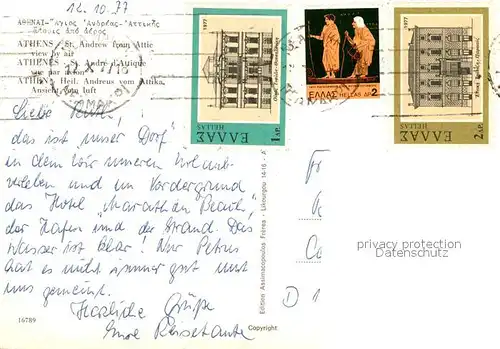 12.10.77
ΑΘΗΝΑΙ-Ἅγιος Ἀνδρέας-Ἀττικῆς
Ἄποψις ἀπό ἀέρος
ATHENS St. Andrew from Attic
view by air
ATHENES St. André d'Attique
vue par avion
ATHEN Heil. Andreus vom Attika,
Ansicht von luft
1977
ΕΛΛΑΣ
HELLAS
1 ΔΡ.
ΕΛΛΑΣ HELLAS ΔΡ. 2
1977
ΕΛΛΑΣ
HELLAS
2 ΔΡ.
Liebe
das ist unser Dorf
in dem wir unseren Urlaub
verleben und im Vordergrund
das Hotel „Marathon Beach",
der Hafen und der Strand. Das
Wasser ist klar! Nur Petrus
hat es nicht immer gut mit
uns gemeint.
Herzliche Grüße
Eure Reisetante
Edition Assimacopoulos Frères - Likourgou 14-16 - A
16789
Copyright
D 1
privacy protection
Datenschutz